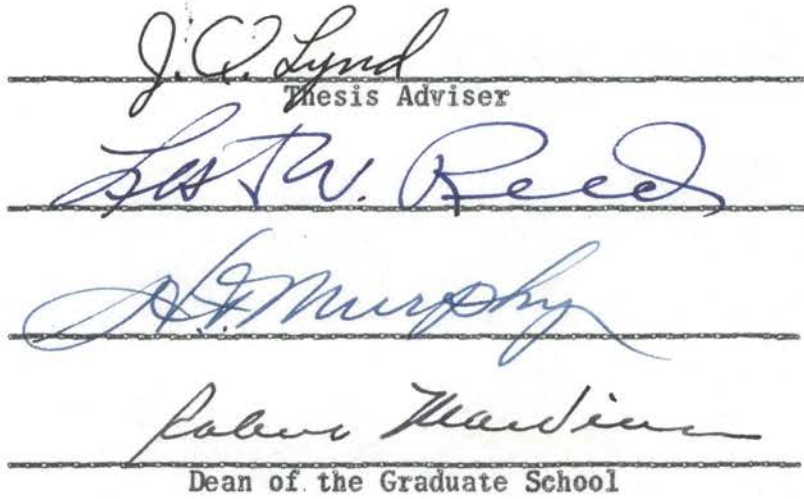 J. Q. Lynd
Thesis Adviser
Lester W. Reed
H. F. Murphy
Dean of the Graduate School